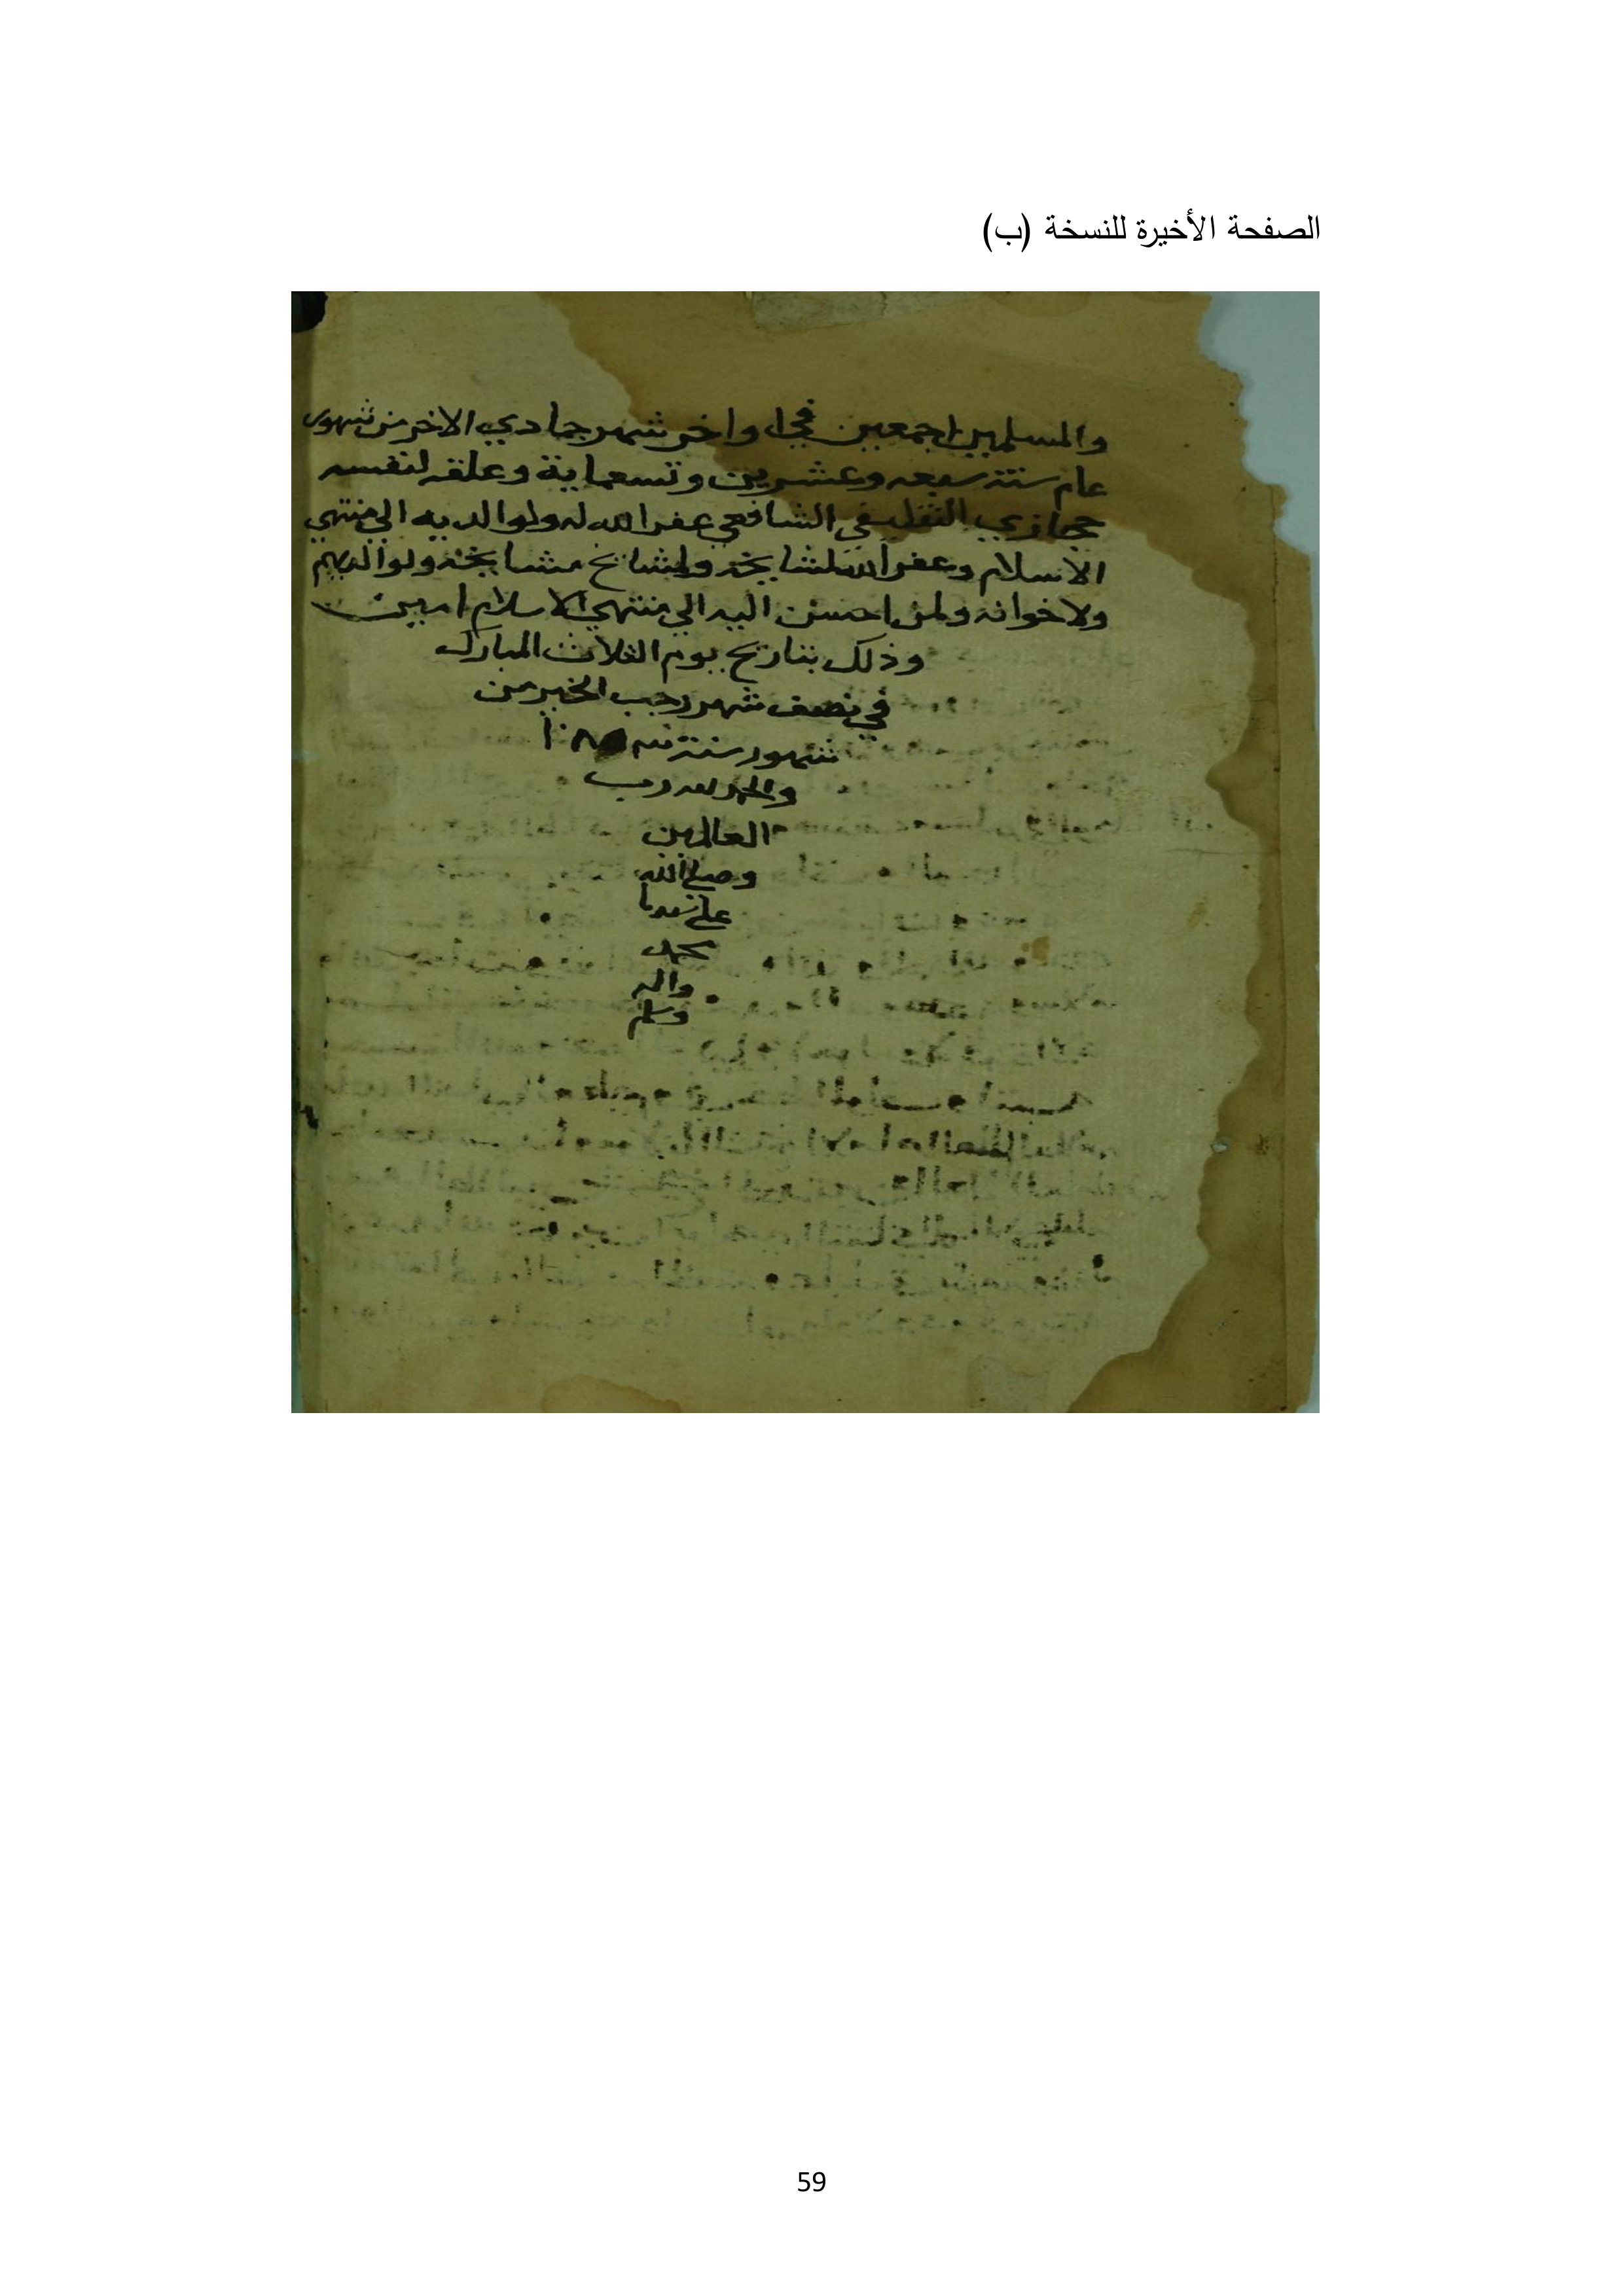 الصفحة الأخيرة للنسخة (ب)
والمسلمين اجمعين في اواخر شهر جمادي الاخر من شهور
عام ستة سبعه وعشرين وتسعماية وعلقه لنفسه
حجازي الشافعي غفر الله له ولوالديه الي منتهي
الاسلام وغفر الله لمشايخه ولمشايخ مشايخه ولوالديهم
ولاخوانه ولمن احسن اليه الي منتهي الاسلام امين
وذلك بتاريخ يوم الثلاث المبارك
في نصف شهر رجب الخير من
شهور سنة
والحمد لله رب
العالمين
وصلى الله
على سيدنا
محمد
واله
وسلم
59